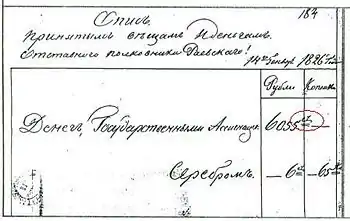 184
Опись
принятымъ вещамъ и деньгамъ
Отставного полковника Раевскаго!
14го Генваря 1826 года
Рубли Копейки
Денегъ, Государственными Ассигнац: 6055
Серебромъ — 6 — 65